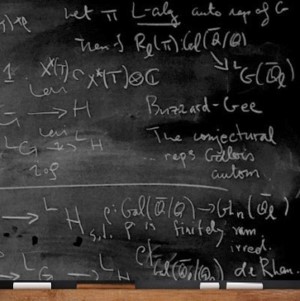 Let π L-alg auto rep of G
Then ∃ R_l(π): Gal(Q̄/Q)
↘ ^L G(Q̄_l)
1. X*(T) ⊂ X*(T)⊗C
Levi
G → H
Buzzard-Gee
Levi
^L G → ^L H
The conjectural
reps Galois
autom.
→ ^L H
ρ: Gal(Q̄/Q) → GL_n(Q̄_l)
s.t. ρ is finitely ram.
irred.
→ ^L G → ^L H
ρ|Gal(Q̄_l/Q_l) de Rham.